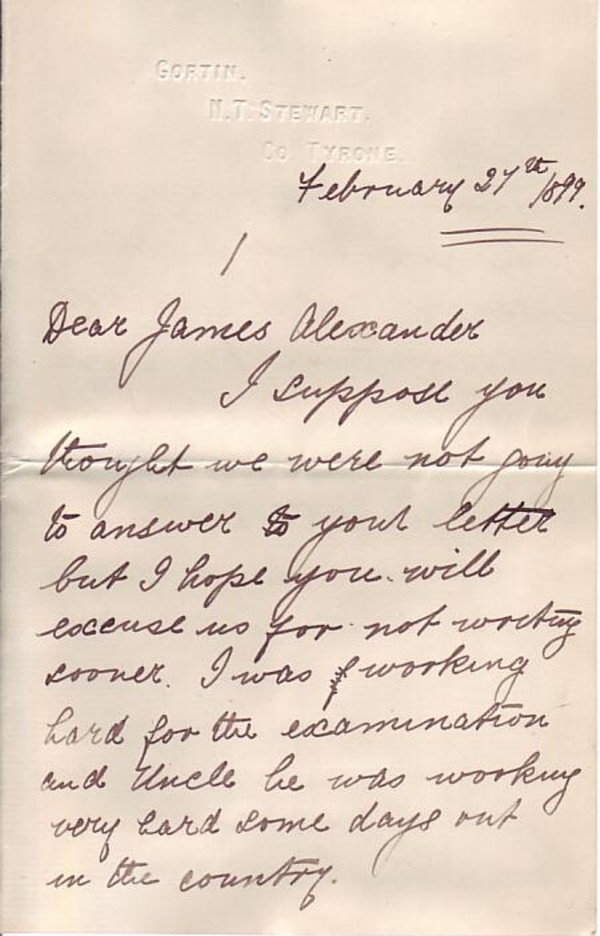 GORTIN.
N.T. STEWART.
CO TYRONE.
February 27th /899.
Dear James Alexander
I suppose you
thought we were not going
to answer to your letter
but I hope you will
excuse us for not writing
sooner. I was working
hard for the examination
and Uncle he was working
very hard some days out
in the country.